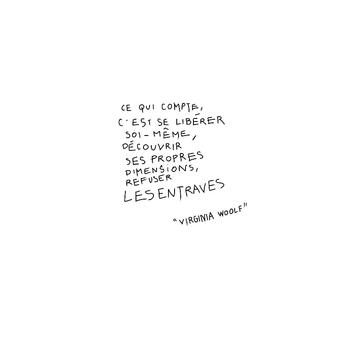 CE QUI COMPTE,
C'EST SE LIBÉRER
SOI-MÊME,
DÉCOUVRIR
SES PROPRES
DIMENSIONS,
REFUSER
LES ENTRAVES
"VIRGINIA WOOLF"